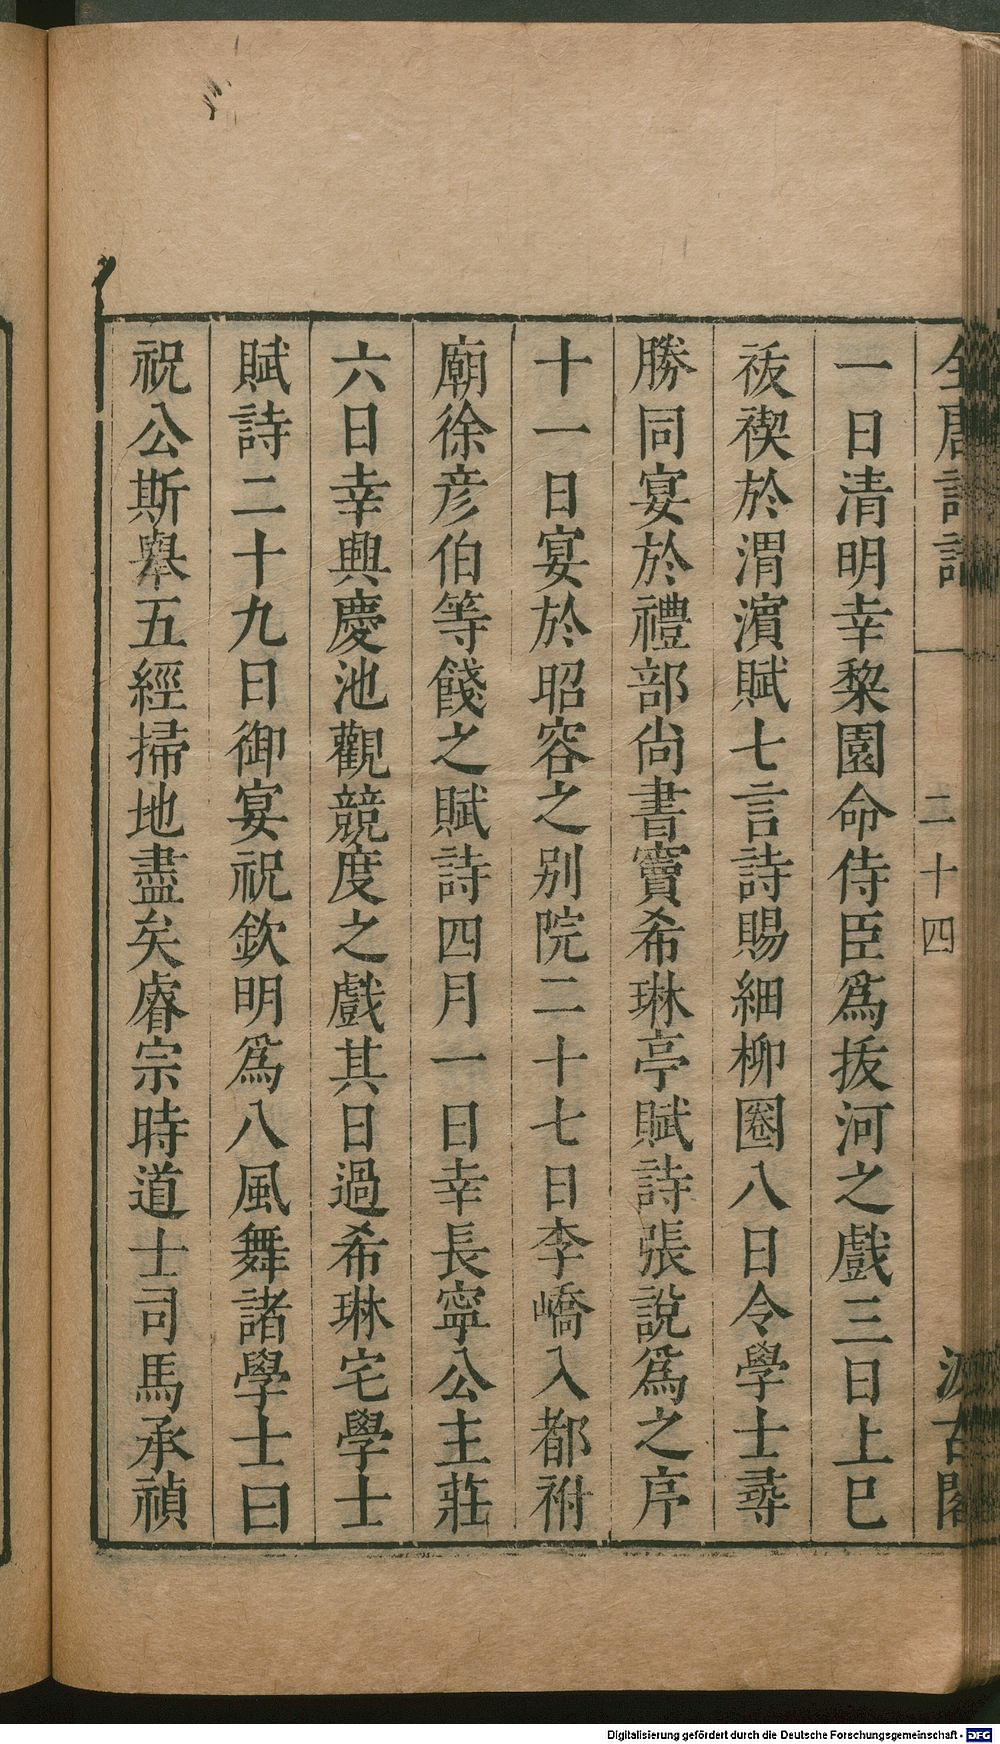 全唐詩話 一 二十四 汲古閣
一日清明幸黎園命侍臣爲拔河之戲三日上巳
祓禊於渭濵賦七言詩賜細柳圈八日令學士尋
勝同宴於禮部尚書竇希琳亭賦詩張說爲之序
十一日宴於昭容之别院二十七日李嶠入都祔
廟徐彦伯等餞之賦詩四月一日幸長寧公主莊
六日幸興慶池觀競度之戲其日過希琳宅學士
賦詩二十九日御宴祝欽明爲八風舞諸學士曰
祝公斯舉五經掃地盡矣睿宗時道士司馬承禎
Digitalisierung gefördert durch die Deutsche Forschungsgemeinschaft - DFG